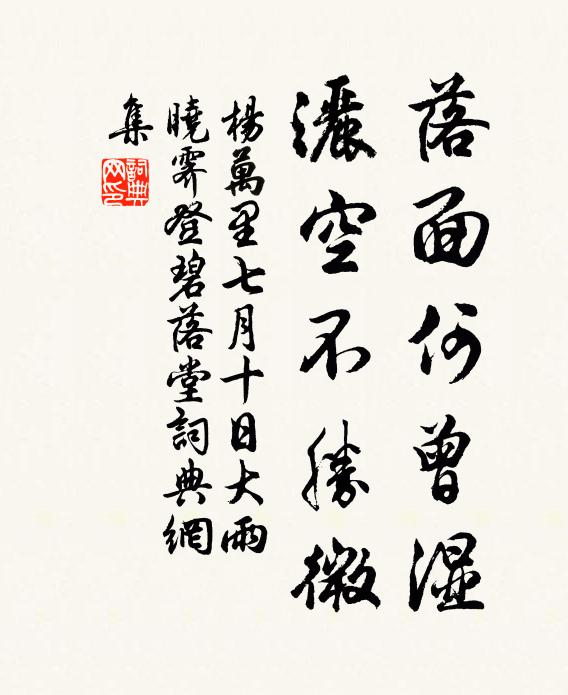 落面何曾濕
灑空不勝微
楊萬里七月十日大雨
曉霽登碧落堂詞典網
集
詞典
网印